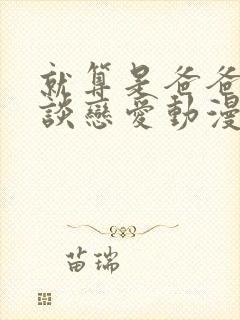 就算是爸爸
談戀愛動漫
苗瑞